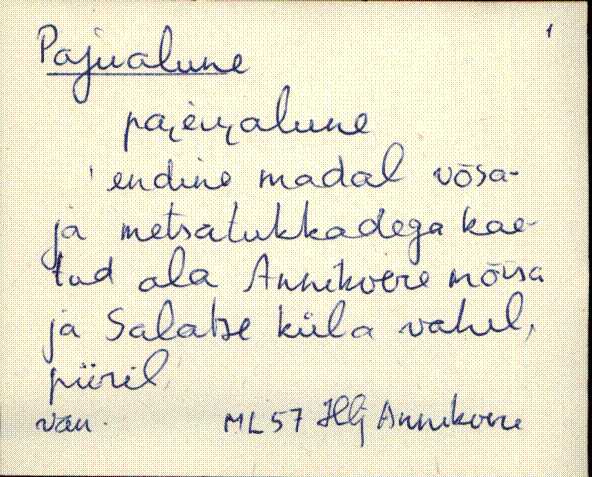 1
Pajualune
pajèi̯alune
'endine madal võsa-
ja metsatukkadega kae-
tud ala Annikvere mõisa
ja Salatse küla vahel,
piiril
van. ML57 Hlj Annikvere